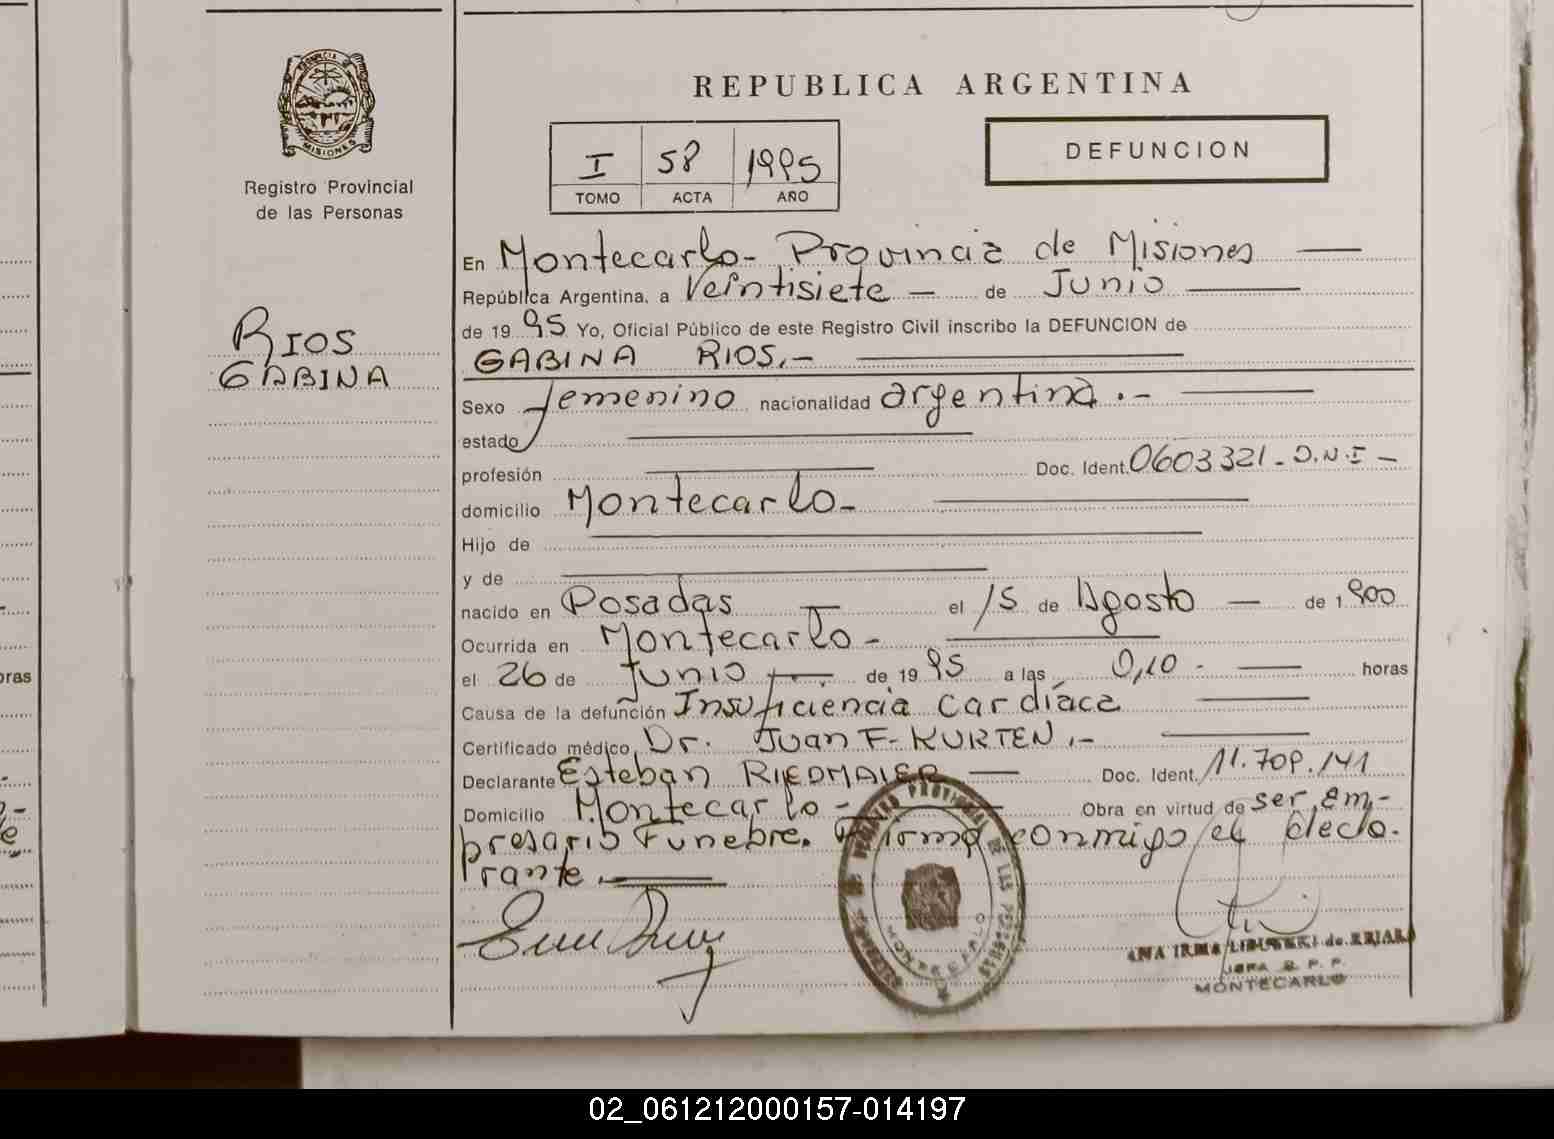 PROVINCIA DE
MISIONES
Registro Provincial
de las Personas
RIOS
GABINA
REPUBLICA ARGENTINA
DEFUNCION
I 58 1995
TOMO ACTA AÑO
En Montecarlo- Provincia de Misiones
República Argentina, a Veintisiete — de Junio
de 19 95 Yo, Oficial Público de este Registro Civil inscribo la DEFUNCION de
GABINA RIOS.-
Sexo femenino nacionalidad argentina.-
estado
profesión Doc. Ident. 0603321- D.N.I -
domicilio Montecarlo-
Hijo de
y de
nacido en Posadas el 15 de Agosto — de 1.900
Ocurrida en Montecarlo-
el 26 de Junio de 19 95 a las 0,10 - horas
Causa de la defunción Insuficiencia cardíaca
Certificado médico Dr. Juan F- KURTEN.-
Declarante Esteban RIEDMAIER — Doc. Ident. 11.709.141
Domicilio Montecarlo- Obra en virtud de ser em-
presario Funebre. Firma conmigo el decla-
rante.
REGISTRO PROVINCIAL DE LAS PERSONAS
MONTECARLO
ANA IRMA de
MONTECARLO
oras
02_061212000157-014197